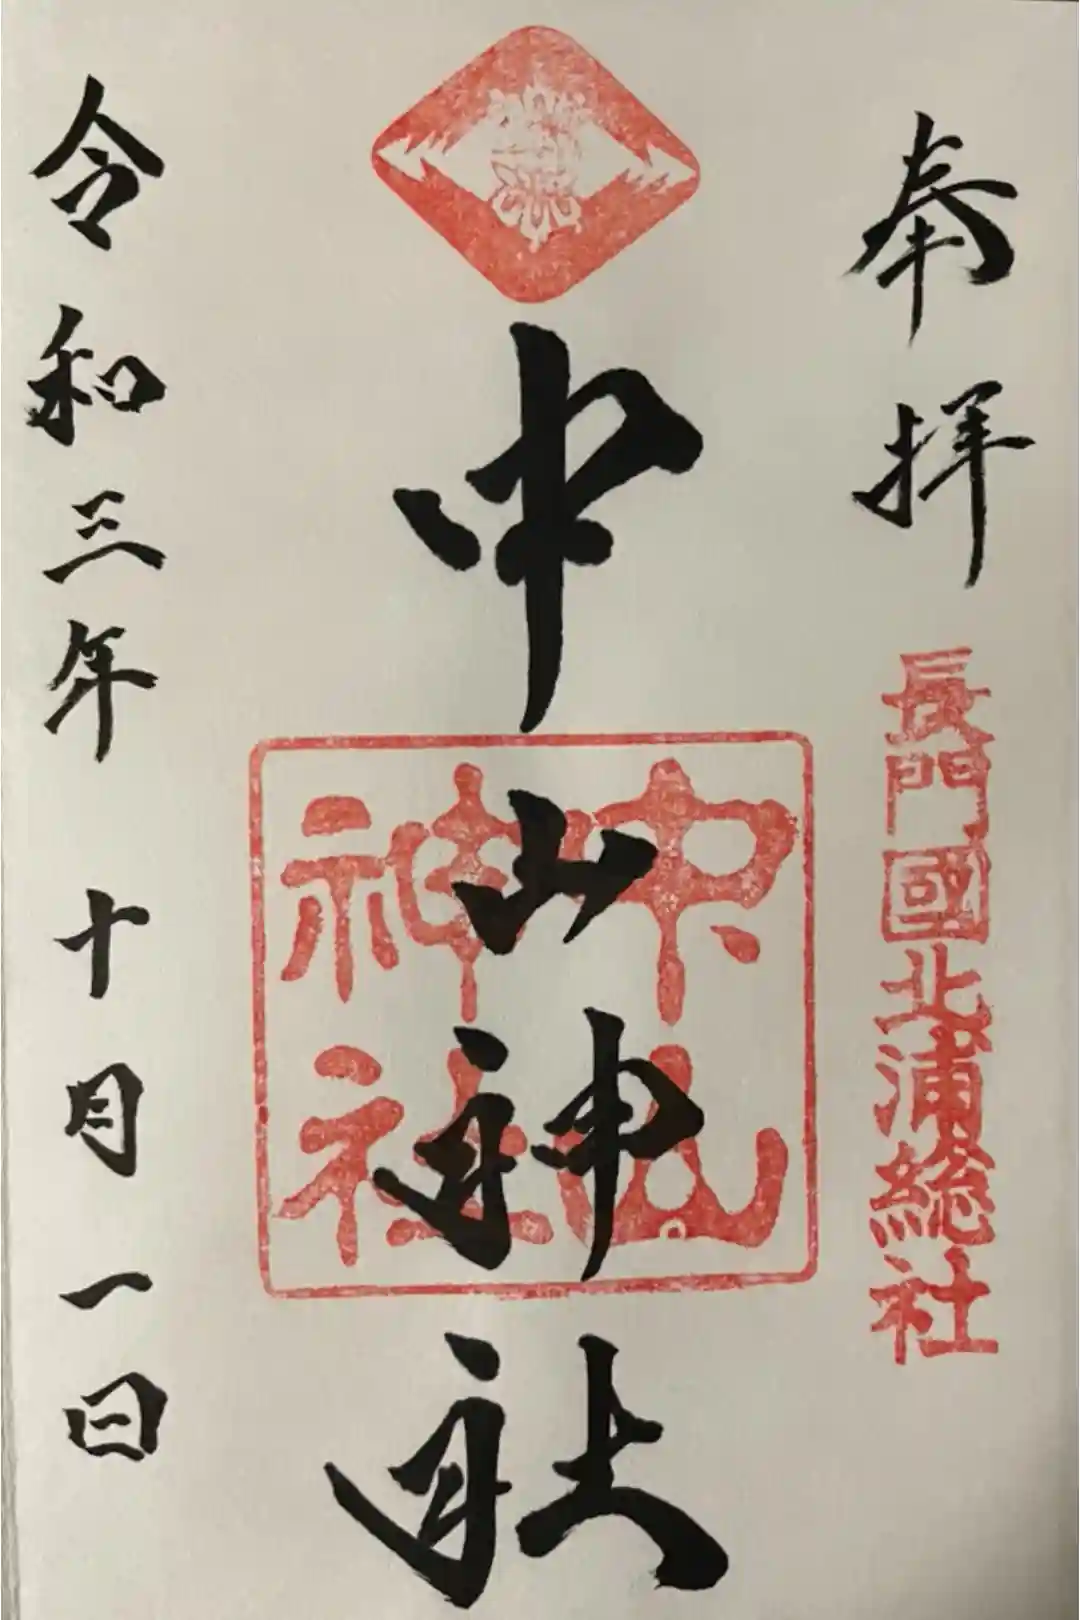 奉拝
長門國北浦總社
中山神社
中山
神社
令和三年十月一日